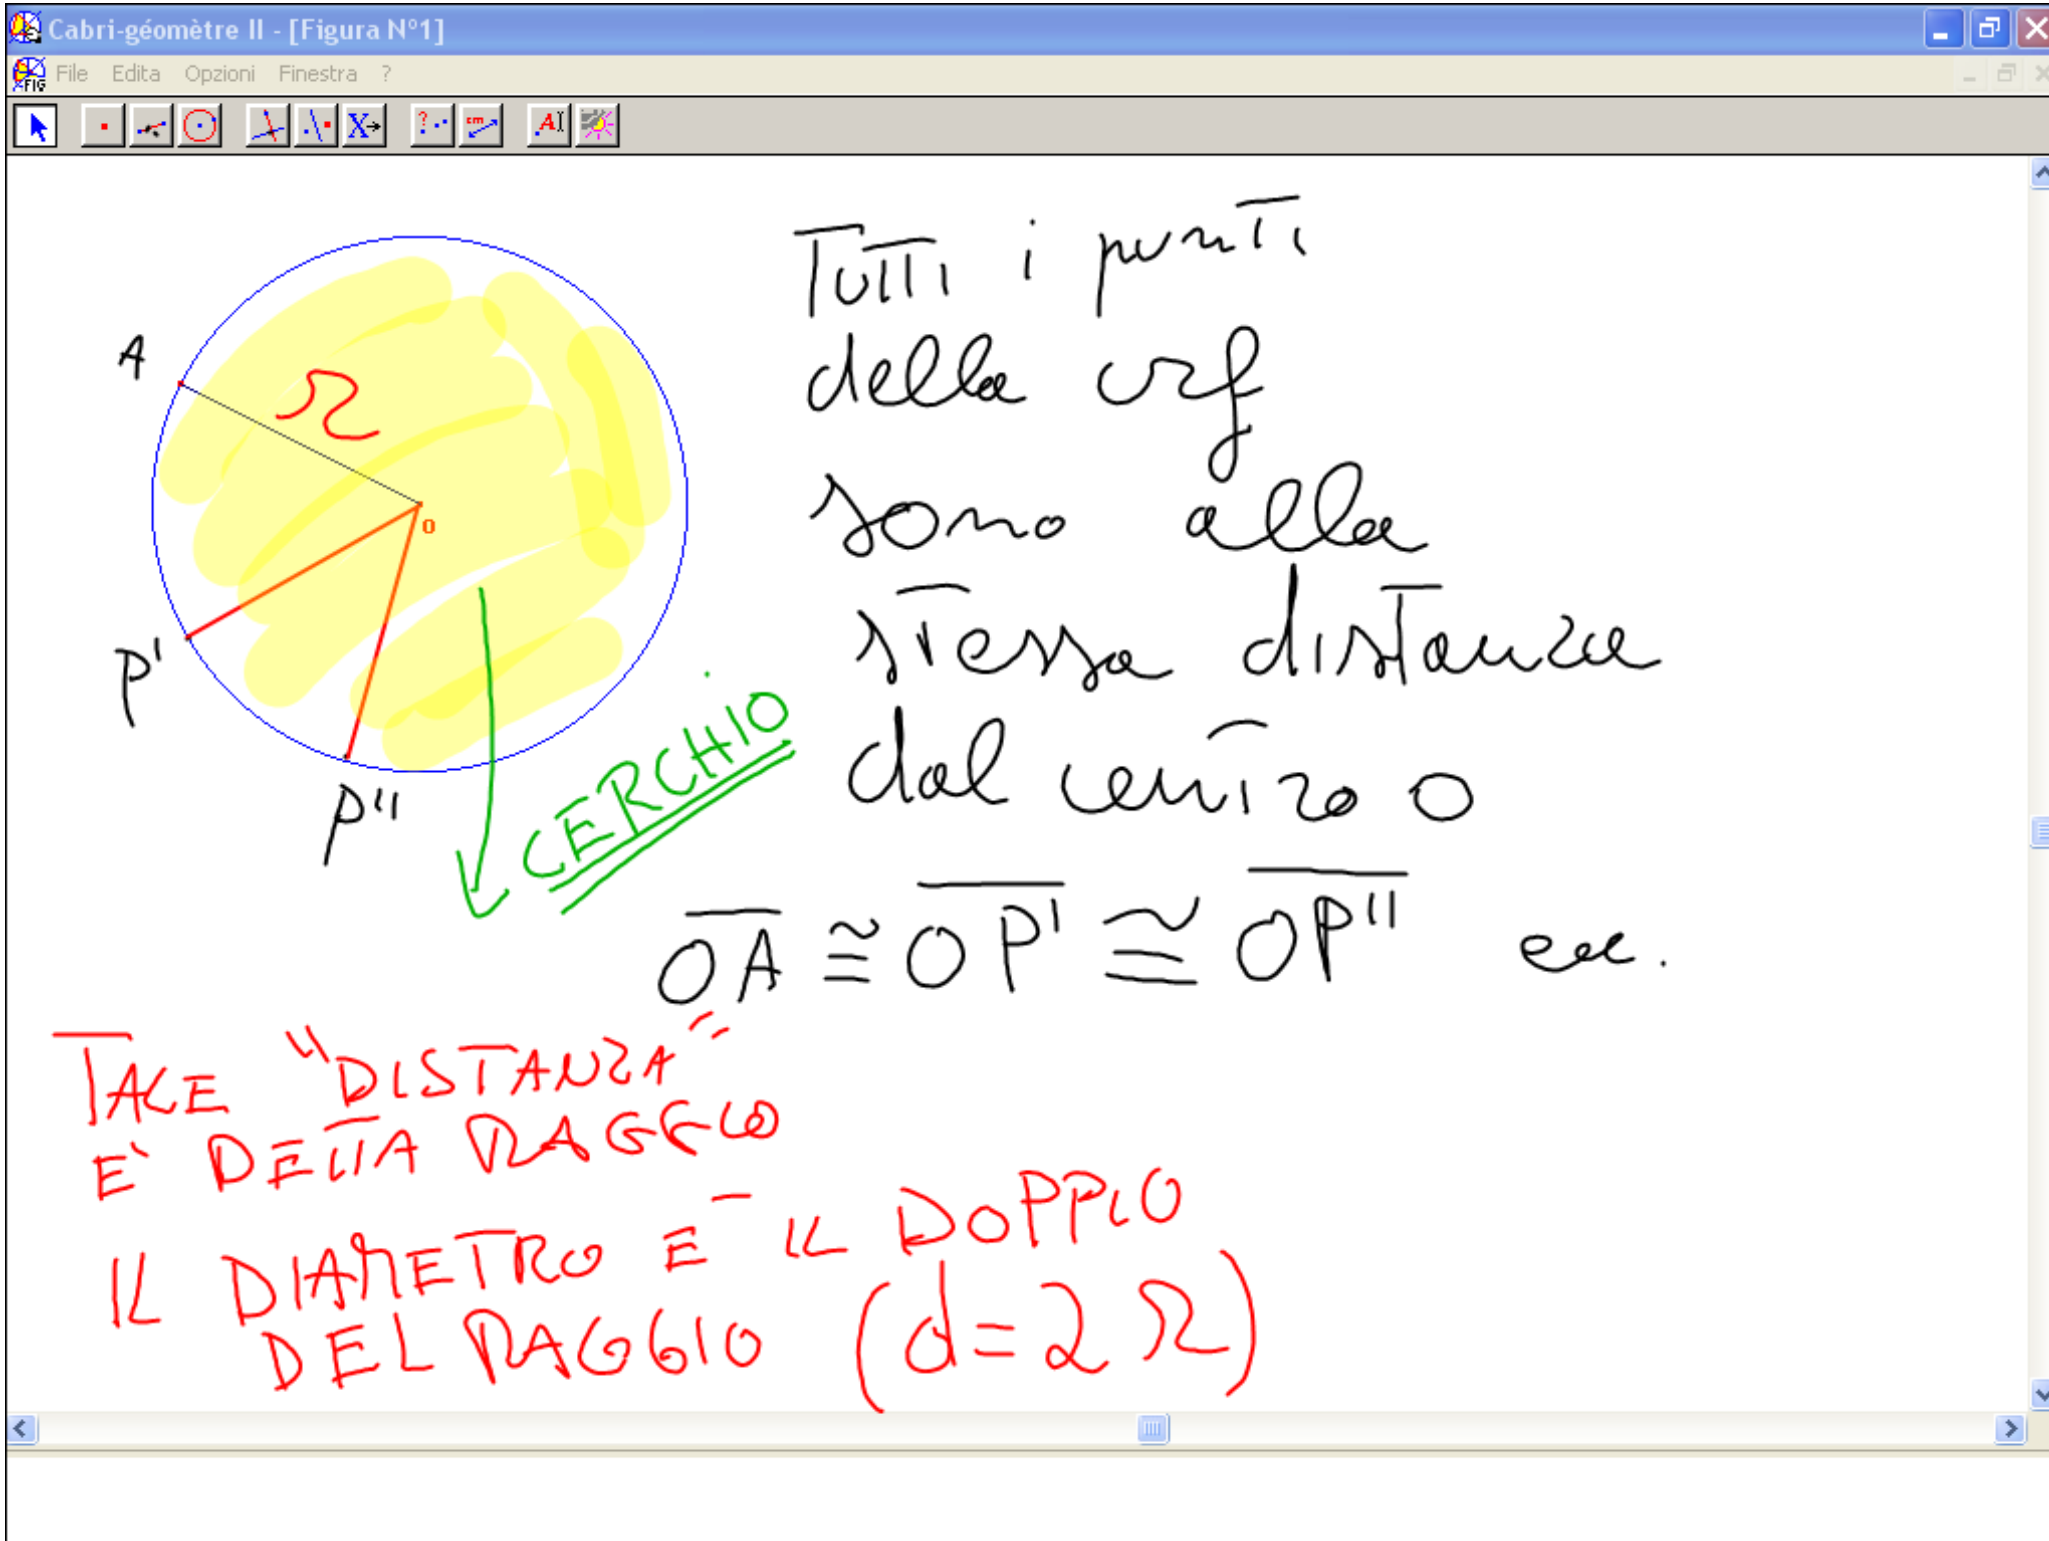 Cabri-géomètre II - [Figura N°1]
File Edita Opzioni Finestra ?
Tutti i punti
della crf
sono alla
stessa distanza
dal centro O
A
r
O
P'
P''
CERCHIO
OA ≅ OP' ≅ OP'' ecc.
TALE "DISTANZA"
E' DETTA RAGGIO
IL DIAMETRO E' IL DOPPIO
DEL RAGGIO (d=2r)